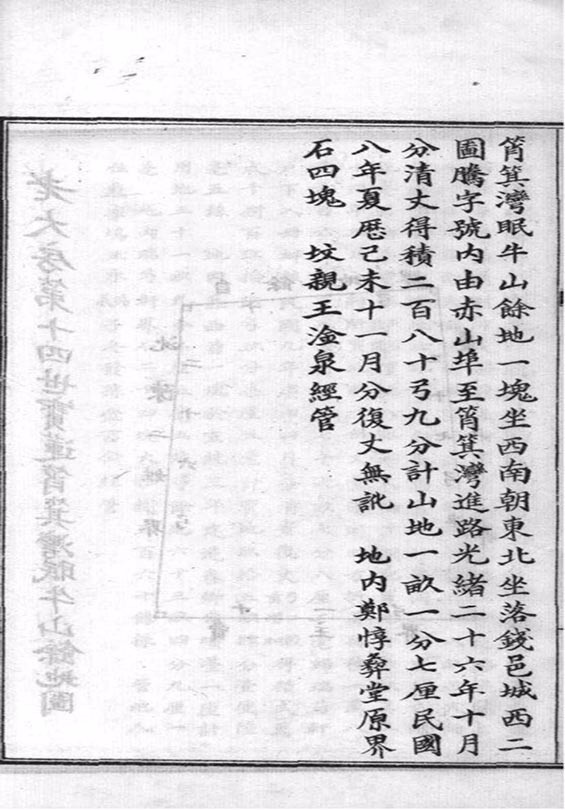 筲箕灣眠牛山餘地一塊坐西南朝東北坐落錢邑城西二
圖騰字號內由赤山埠至筲箕灣進路光緒二十六年十月
分清丈得積二百八十弓九分計山地一畝一分七厘民國
八年夏厯己未十一月分復丈無訛　地內鄭惇彝堂原界
石四塊　坟親王淦泉經管